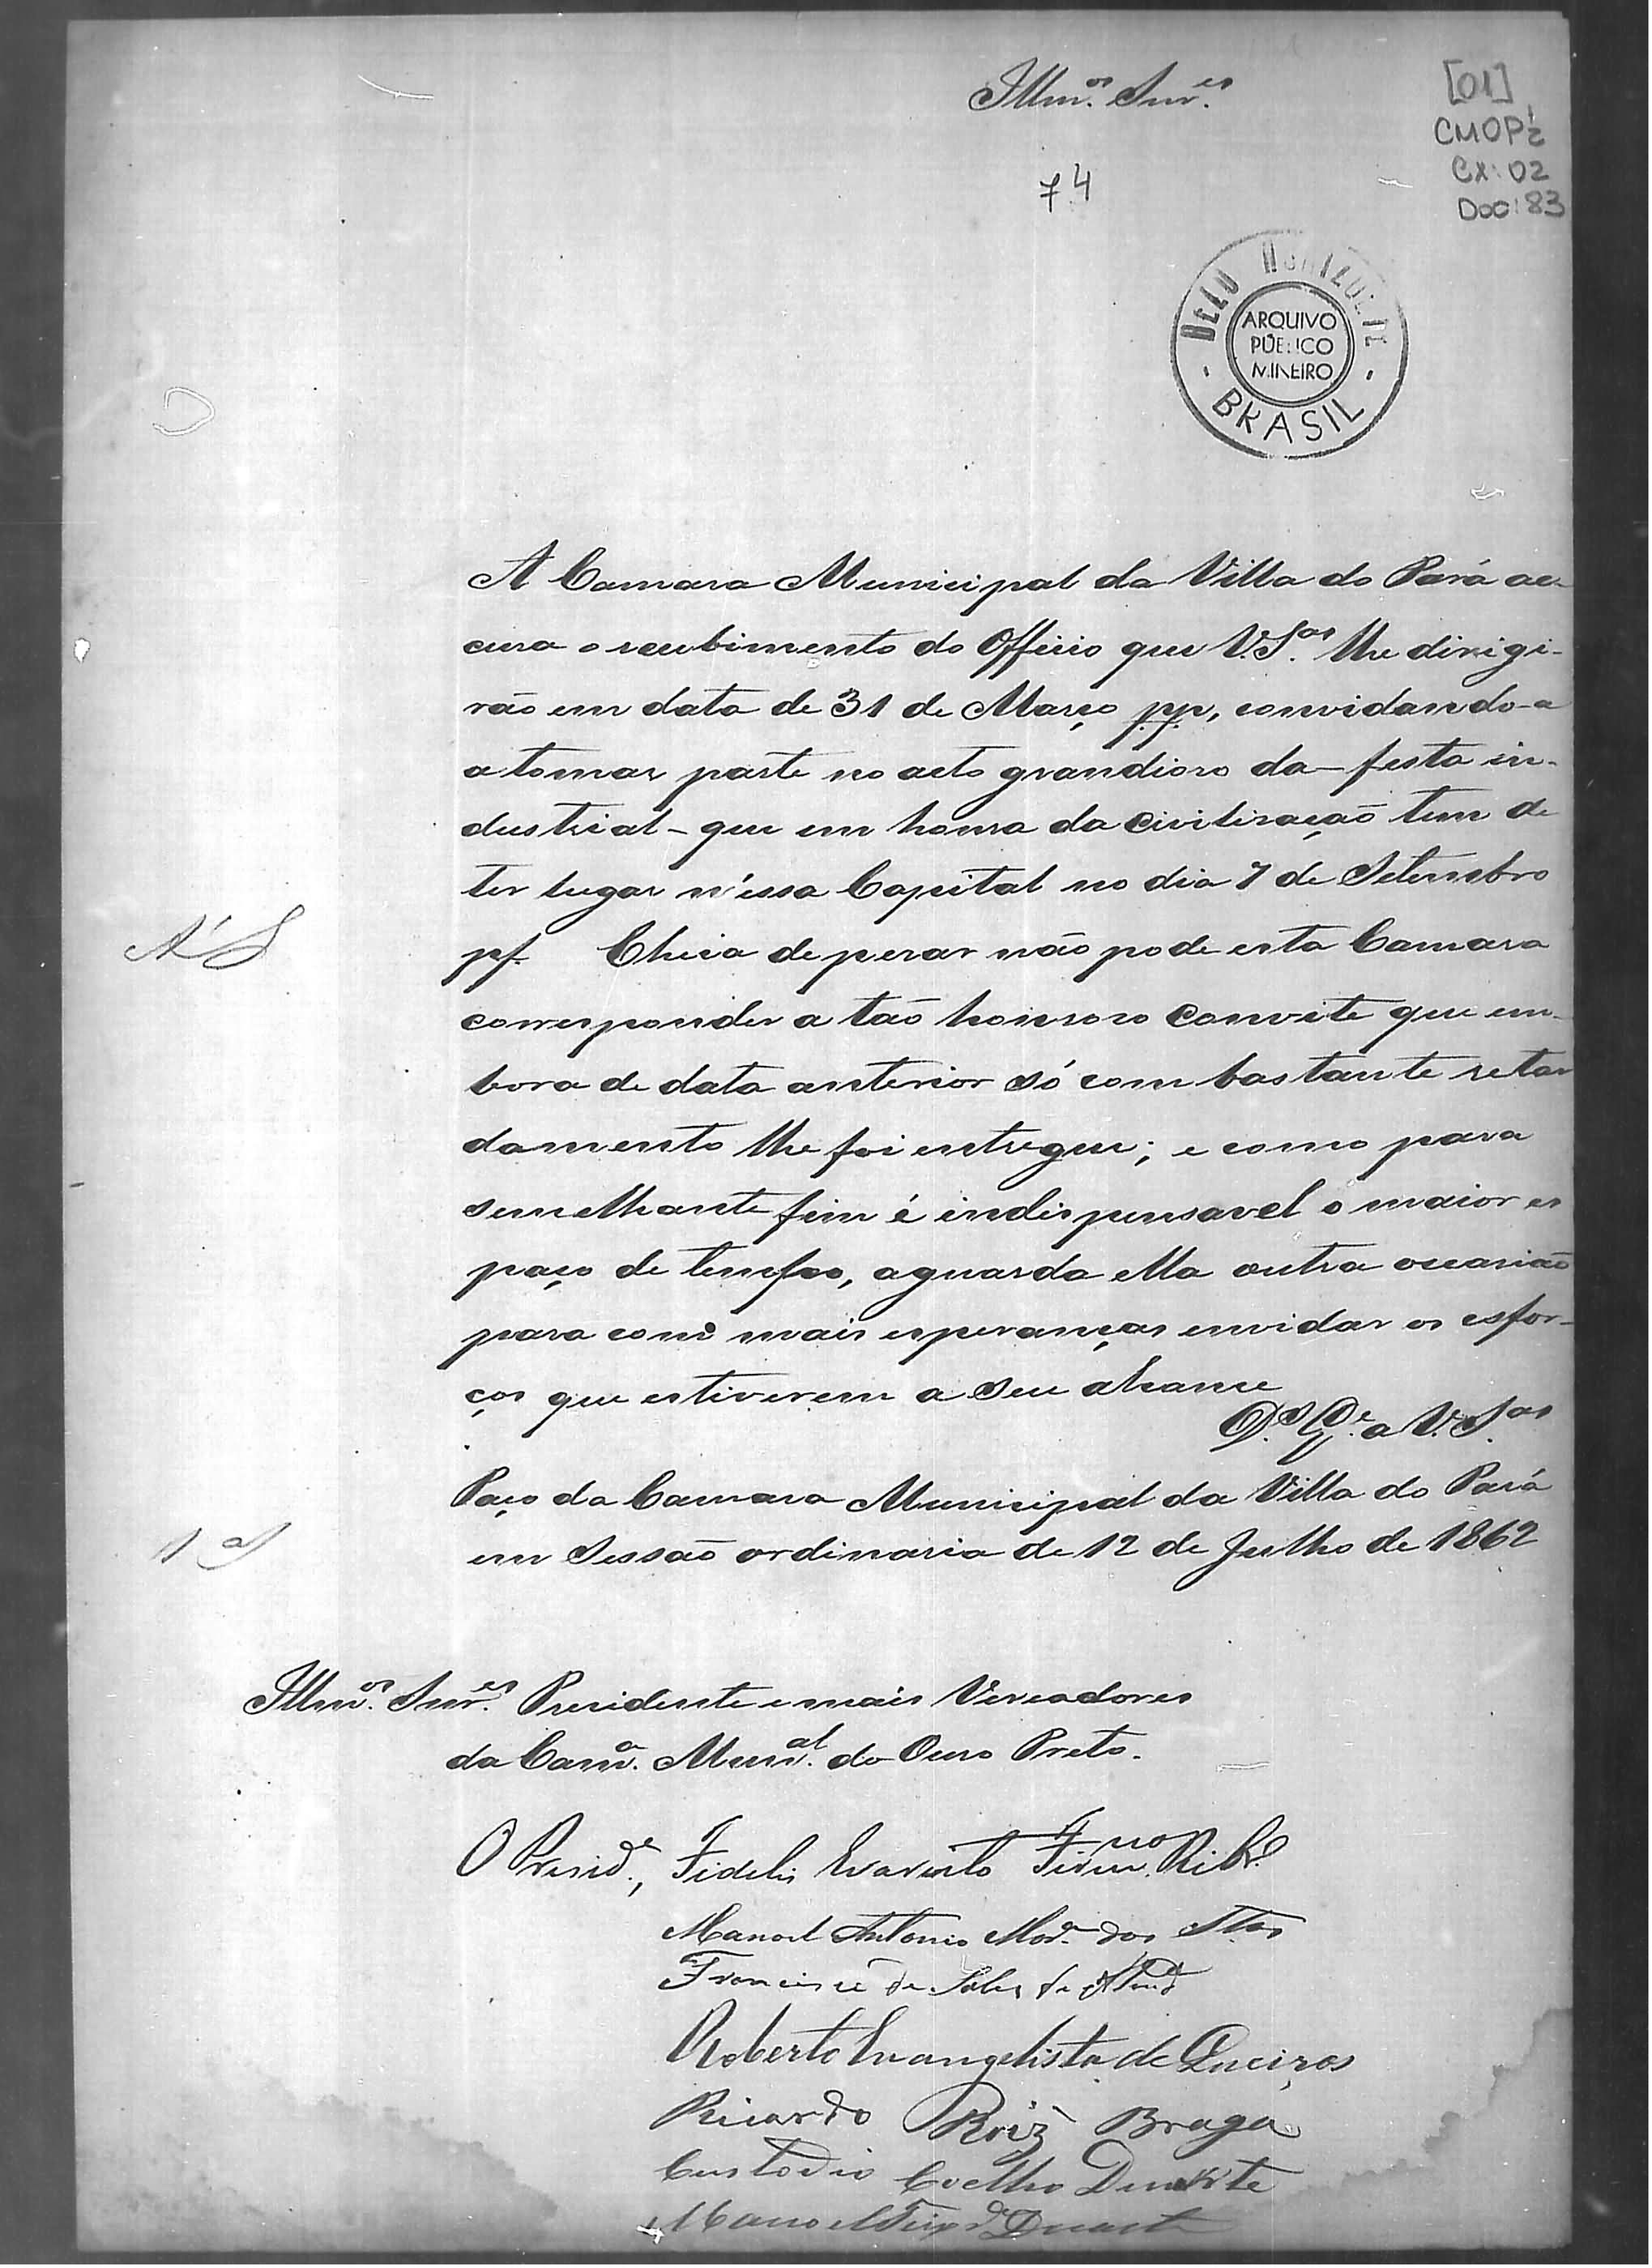 Illm.os Snr.es
[01]
CMOP 1/2
Cx: 02
Doc: 83
74
BELLO HORIZONTE
ARQUIVO
PUBLICO
MINEIRO
BRASIL
A Camara Municipal da Villa do Pará ac-
cusa o recebimento do Officio que V.S.as lhe dirigi-
rão em data de 31 de Março pp, convidando-a
a tomar parte no acto grandioso da - festa in-
dustrial - que em honra da Civilisação tem de
ter lugar n'essa Capital no dia 7 de Setembro
pf. Cheia de pesar não pode esta Camara
corresponder a tão honroso Convite que em-
bora de data anterior só com bastante retar
damento lhe foi entregue; e como para
semelhante fim é indispensavel o maior es
paço de tempo, aguarda ella outra occasião
para com mais esperanças envidar os esfor-
ços que estiverem a seu alcance
D.s G.e a V.S.as
Paço da Camara Municipal da Villa do Pará
em Sessão ordinaria de 12 de Julho de 1862
Illm.os Snr.es Presidente e mais Vereadores
da Cam.a Mun.al do Ouro Preto.
O Presid.e, Fidelis Evaristo Firm.no Ribr.o
Manoel Antonio Mor.a dos Stos
Francisco de Salles
Roberto Evangelista de Queiros
Ricardo Roiz Braga
Custodio Coelho Duarte
Manoel Duarte